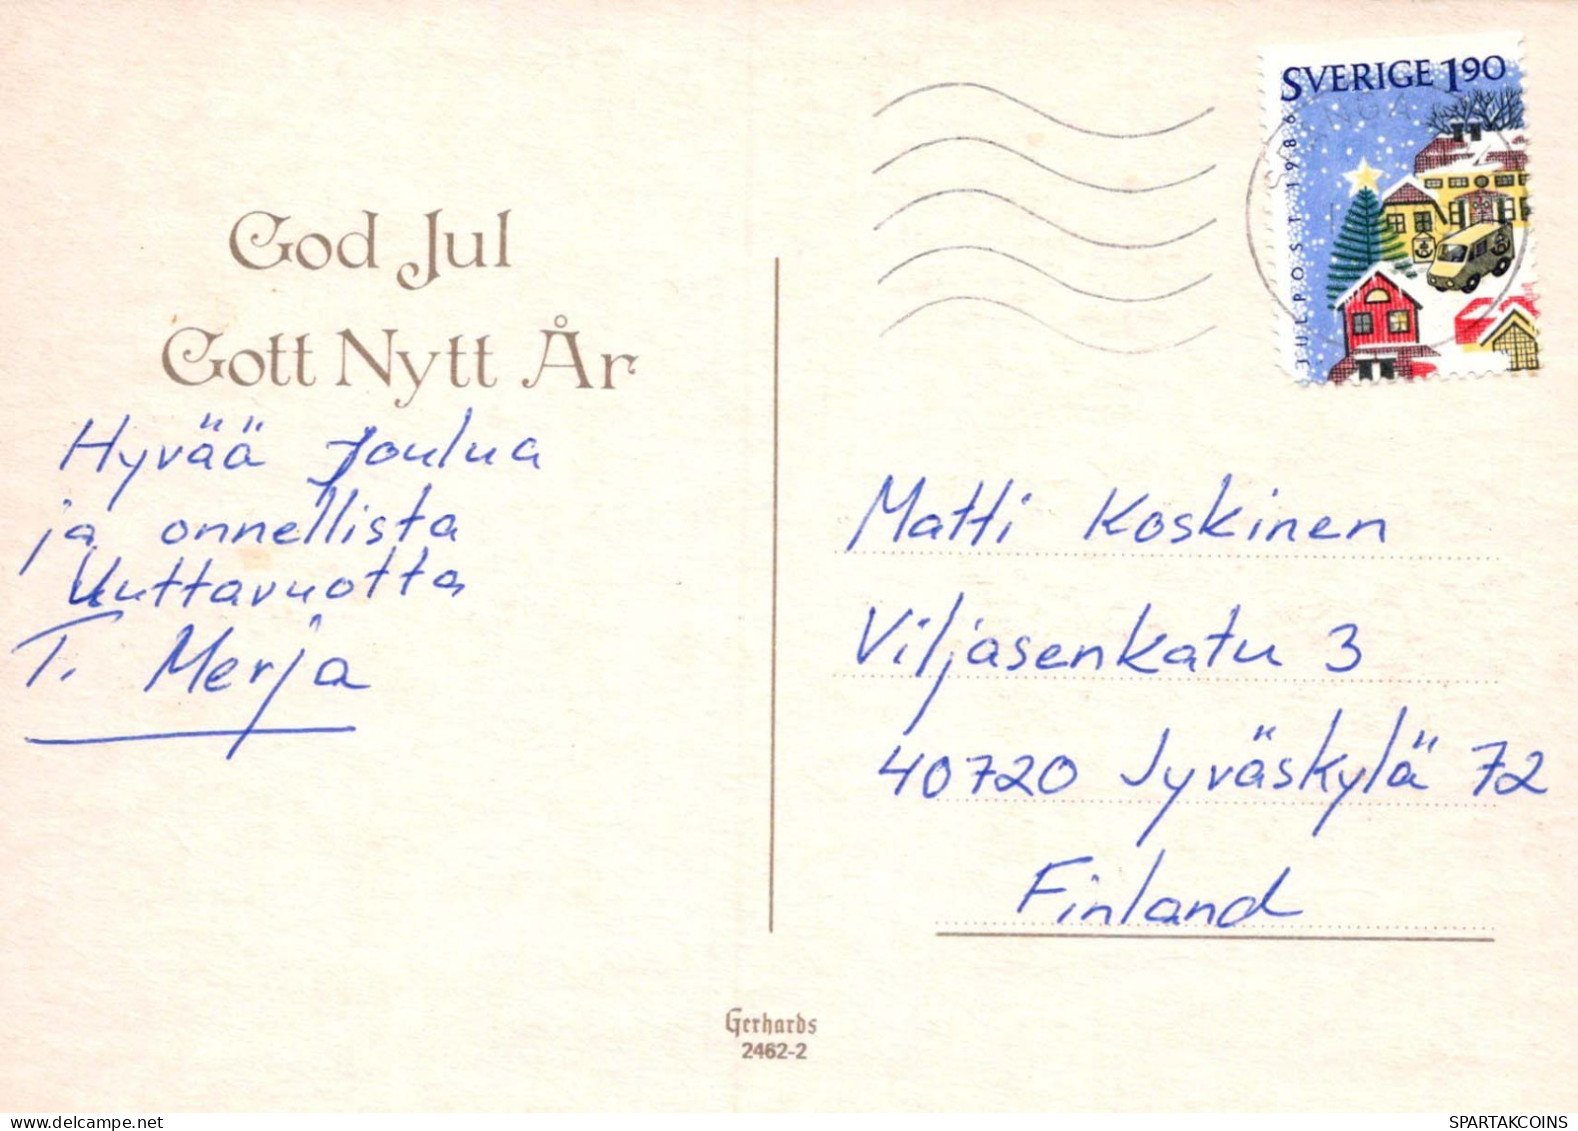 SVERIGE 1.90
JULPOST 1986
God Jul
Gott Nytt År
Hyvää Joulua
ja onnellista
Uuttavuotta
T. Merja
Matti Koskinen
Viljasenkatu 3
40720 Jyväskylä 72
Finland
Gerhards
2462-2
SPARTAKCOINS